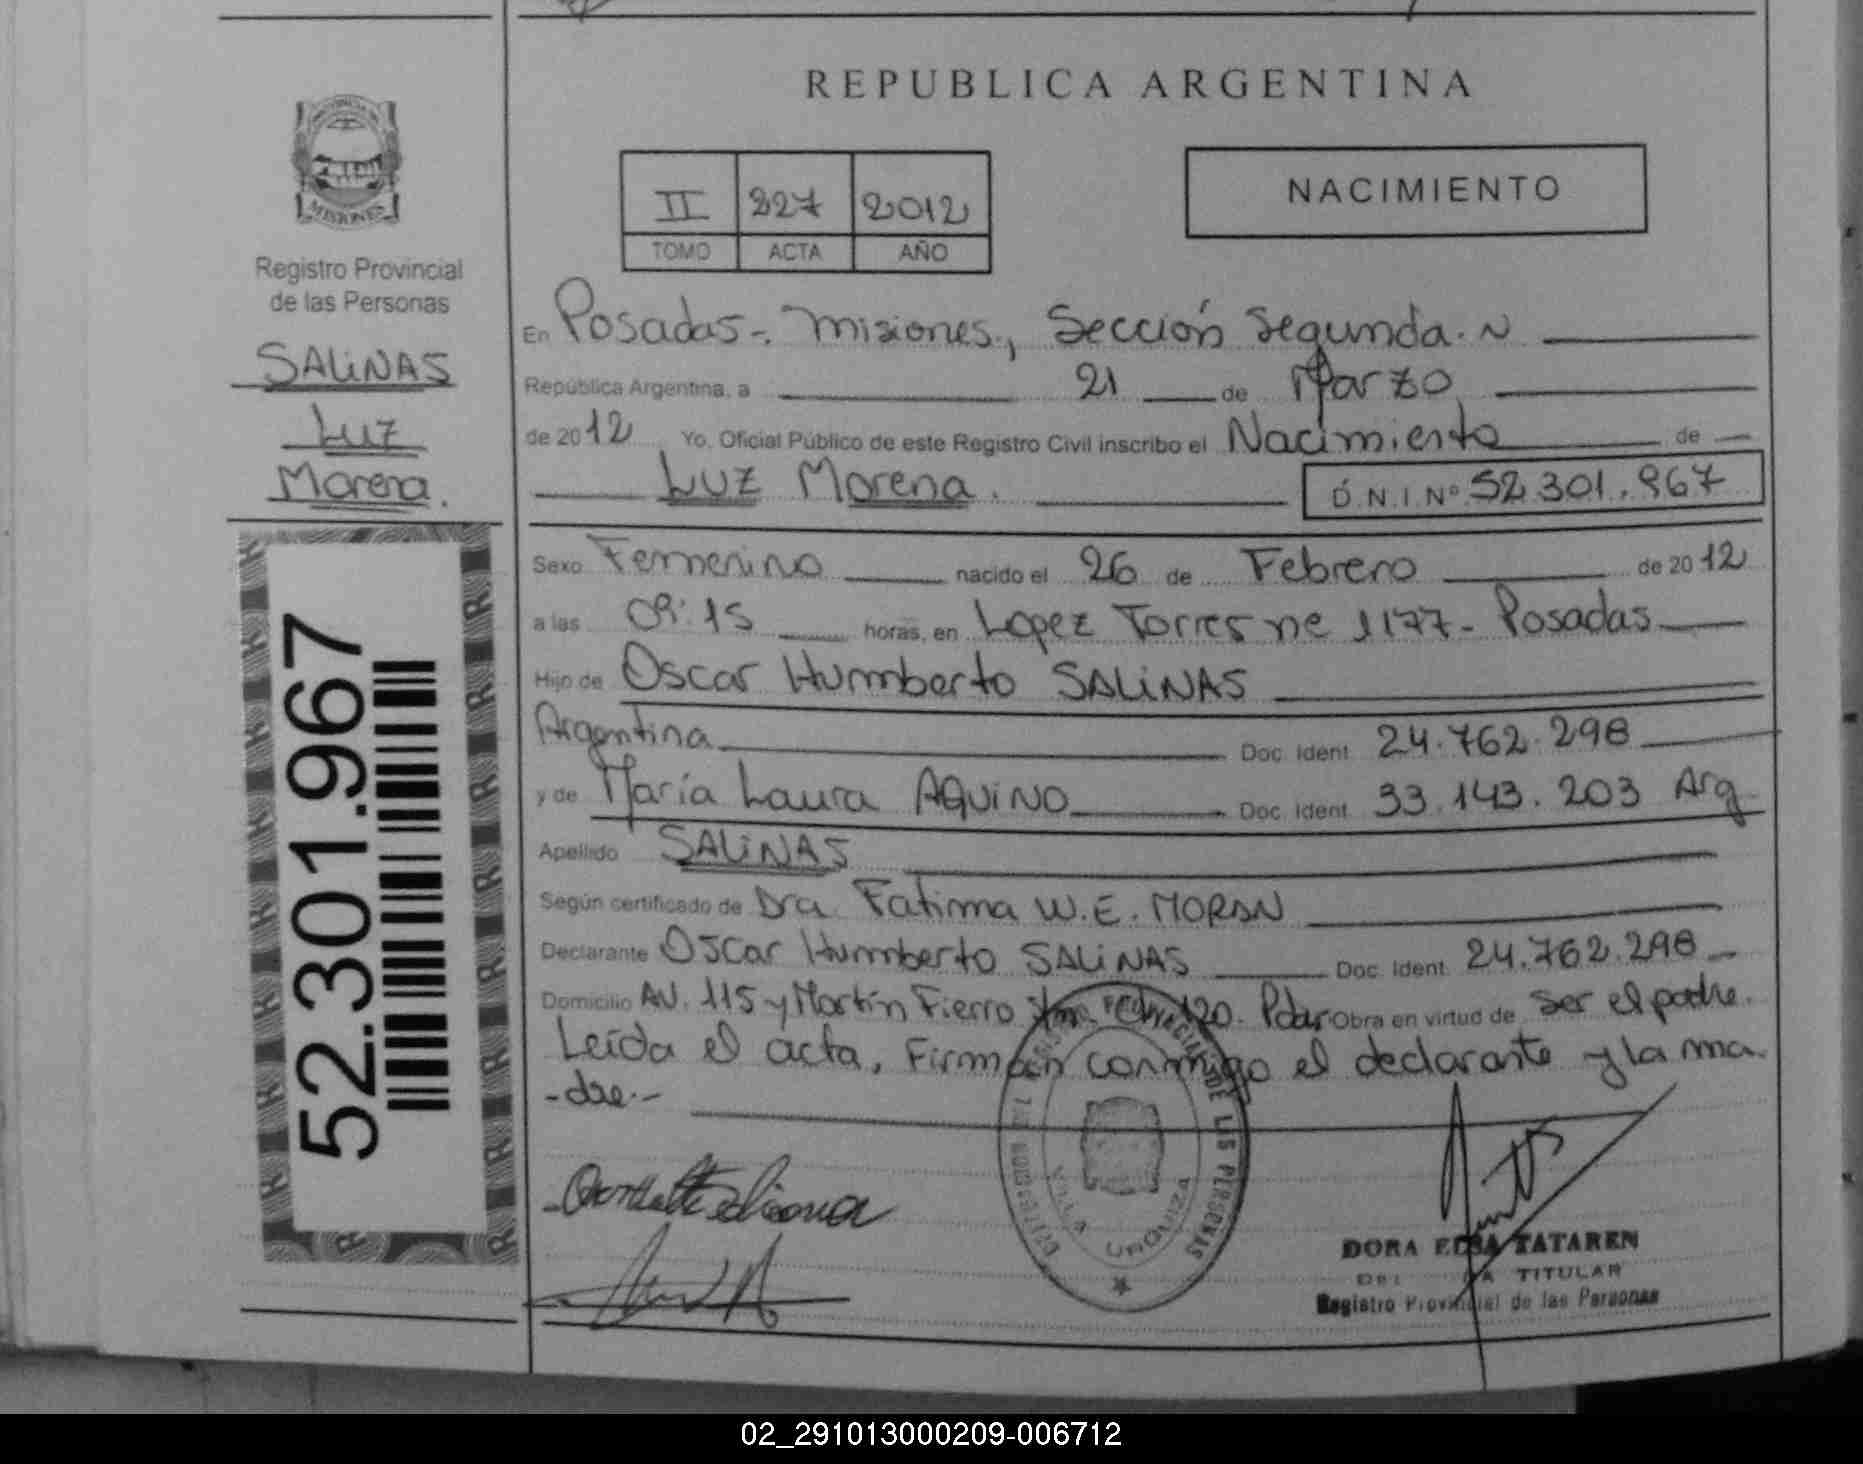 REPUBLICA ARGENTINA
MISIONES
Registro Provincial
de las Personas
SALINAS
Luz
Morena.
52.301.967
II 227 2012
TOMO ACTA AÑO
NACIMIENTO
En Posadas-. Misiones, Sección Segunda.
República Argentina, a 21 de Marzo
de 2012 Yo, Oficial Público de este Registro Civil inscribo el Nacimiento de
Luz Morena. D.N.I.Nº 52.301.967
Sexo Femenino nacido el 26 de Febrero de 2012
a las 09:15 horas, en Lopez Torres nº 1177- Posadas
Hijo de Oscar Humberto SALiNAS
Argentina Doc. Ident. 24.762.298
y de María Laura AQUiNO Doc. Ident. 33.143.203 Arg
Apellido SALiNAS
Según certificado de Dra. Fatima W.E. MORAN
Declarante Oscar Humberto SALiNAS Doc. Ident. 24.762.298
Domicilio AV. 115 y Martín Fierro Ch 120. Pdas Obra en virtud de ser el padre.
Leída el acta, Firman conmigo el declarante y la ma-
-dre.-
REGISTRO PROVINCIAL DE LAS PERSONAS
VILLA URQUIZA
DORA ELSA TATAREN
TITULAR
Registro Provincial de las Personas
02_291013000209-006712